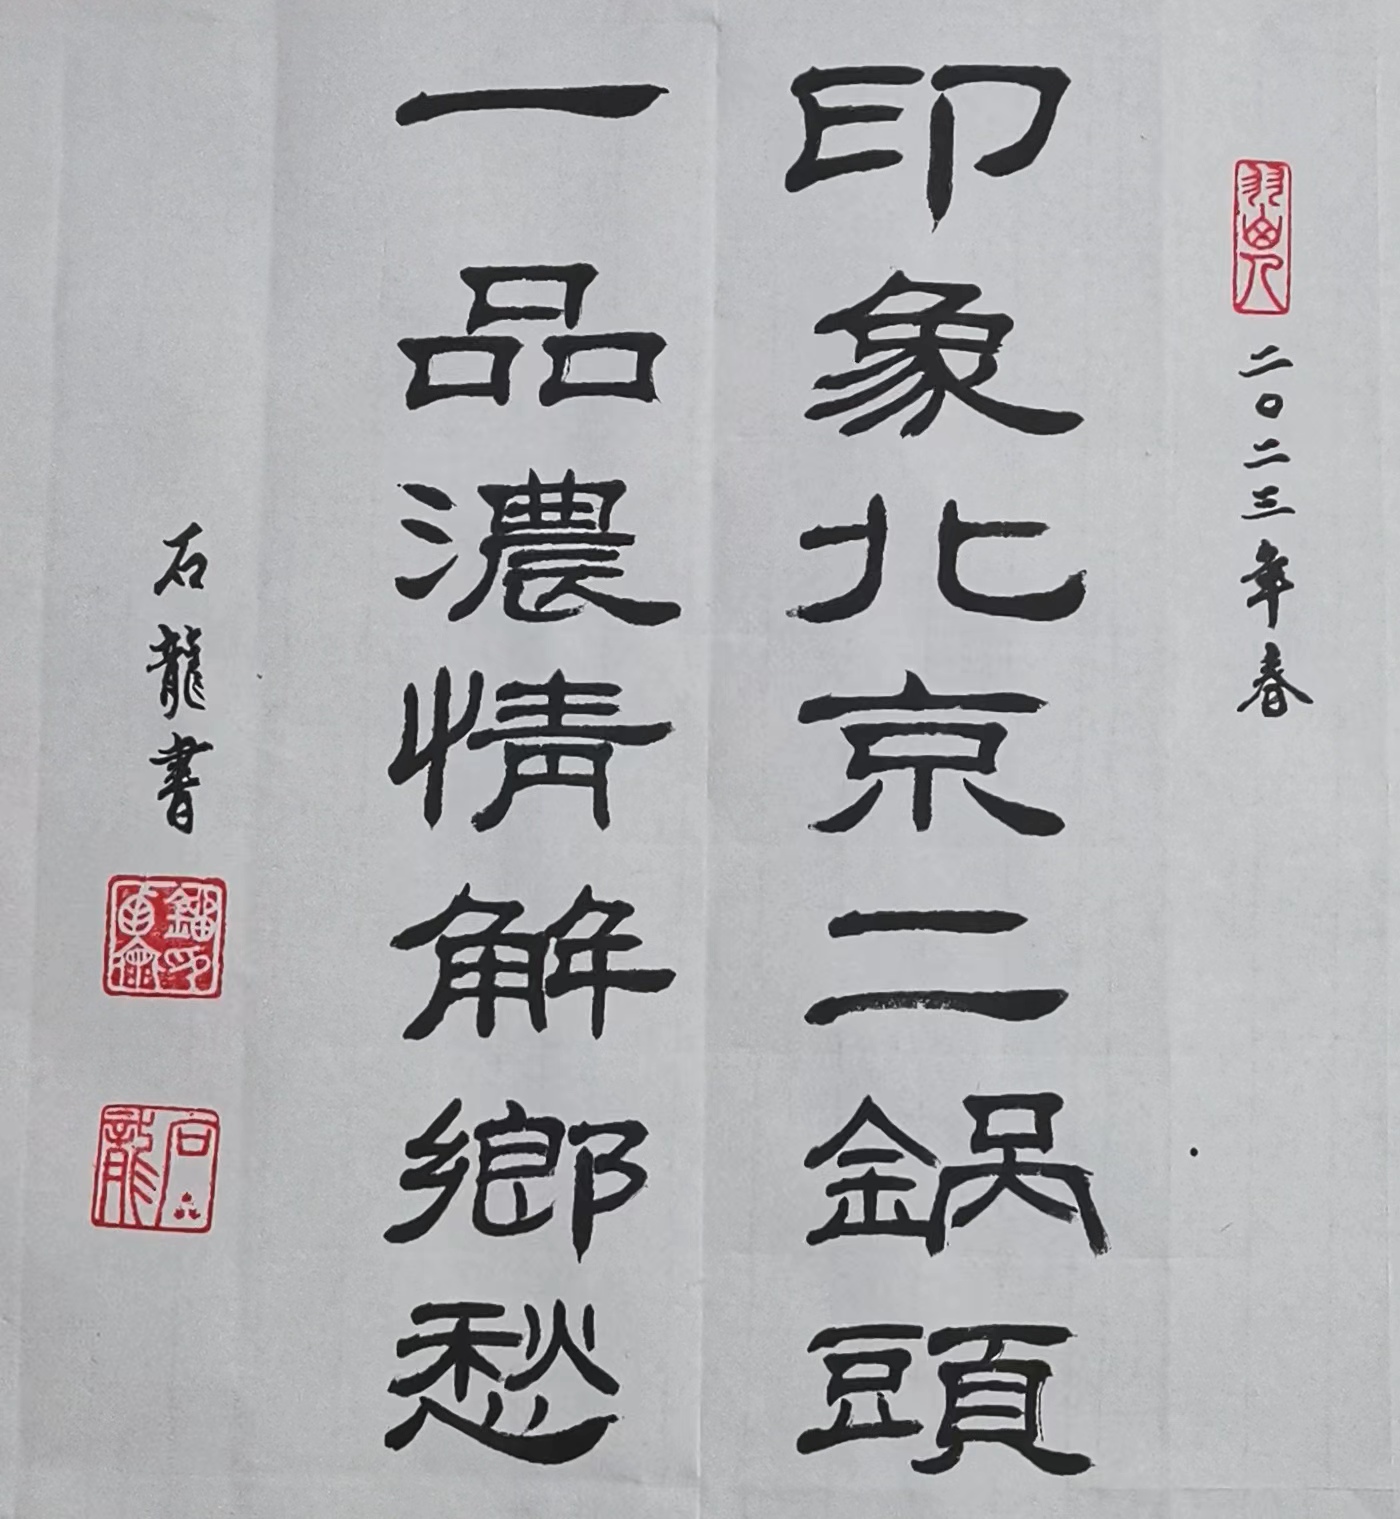 二〇二三年春
印象北京二鍋頭
一品濃情解鄉愁
石龍書
石龍